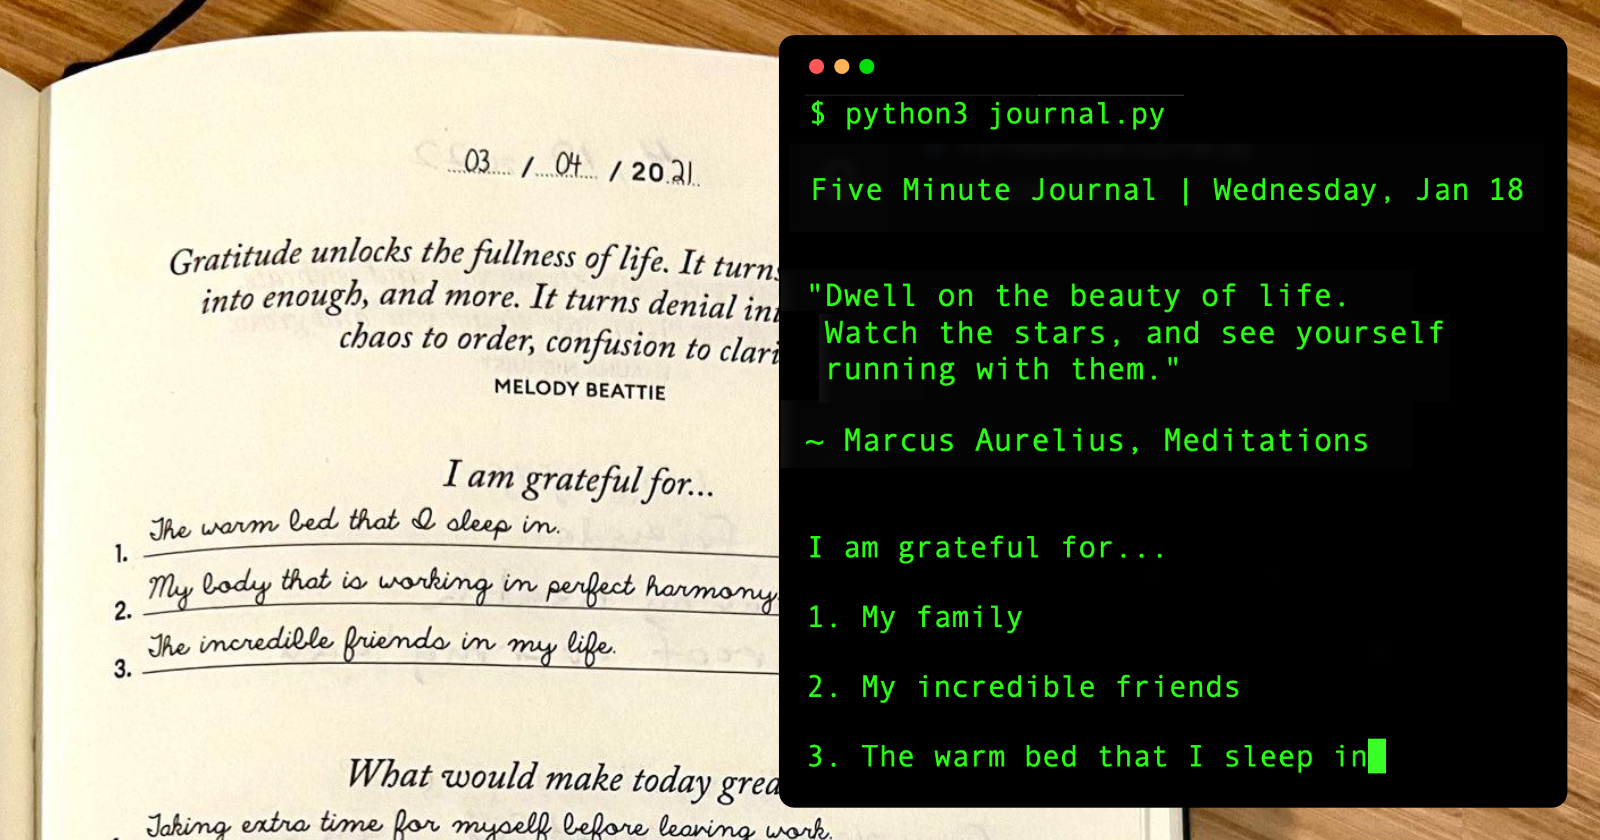 03 / 04 / 2021
Gratitude unlocks the fullness of life. It turns
into enough, and more. It turns denial
chaos to order, confusion to
MELODY BEATTIE
I am grateful for...
1. The warm bed that I sleep in.
2. My body that is working in perfect harmony.
3. The incredible friends in my life.
What would make today
Taking extra time for myself before leaving work.
$ python3 journal.py
Five Minute Journal | Wednesday, Jan 18
"Dwell on the beauty of life.
Watch the stars, and see yourself
running with them."
~ Marcus Aurelius, Meditations
I am grateful for...
1. My family
2. My incredible friends
3. The warm bed that I sleep in